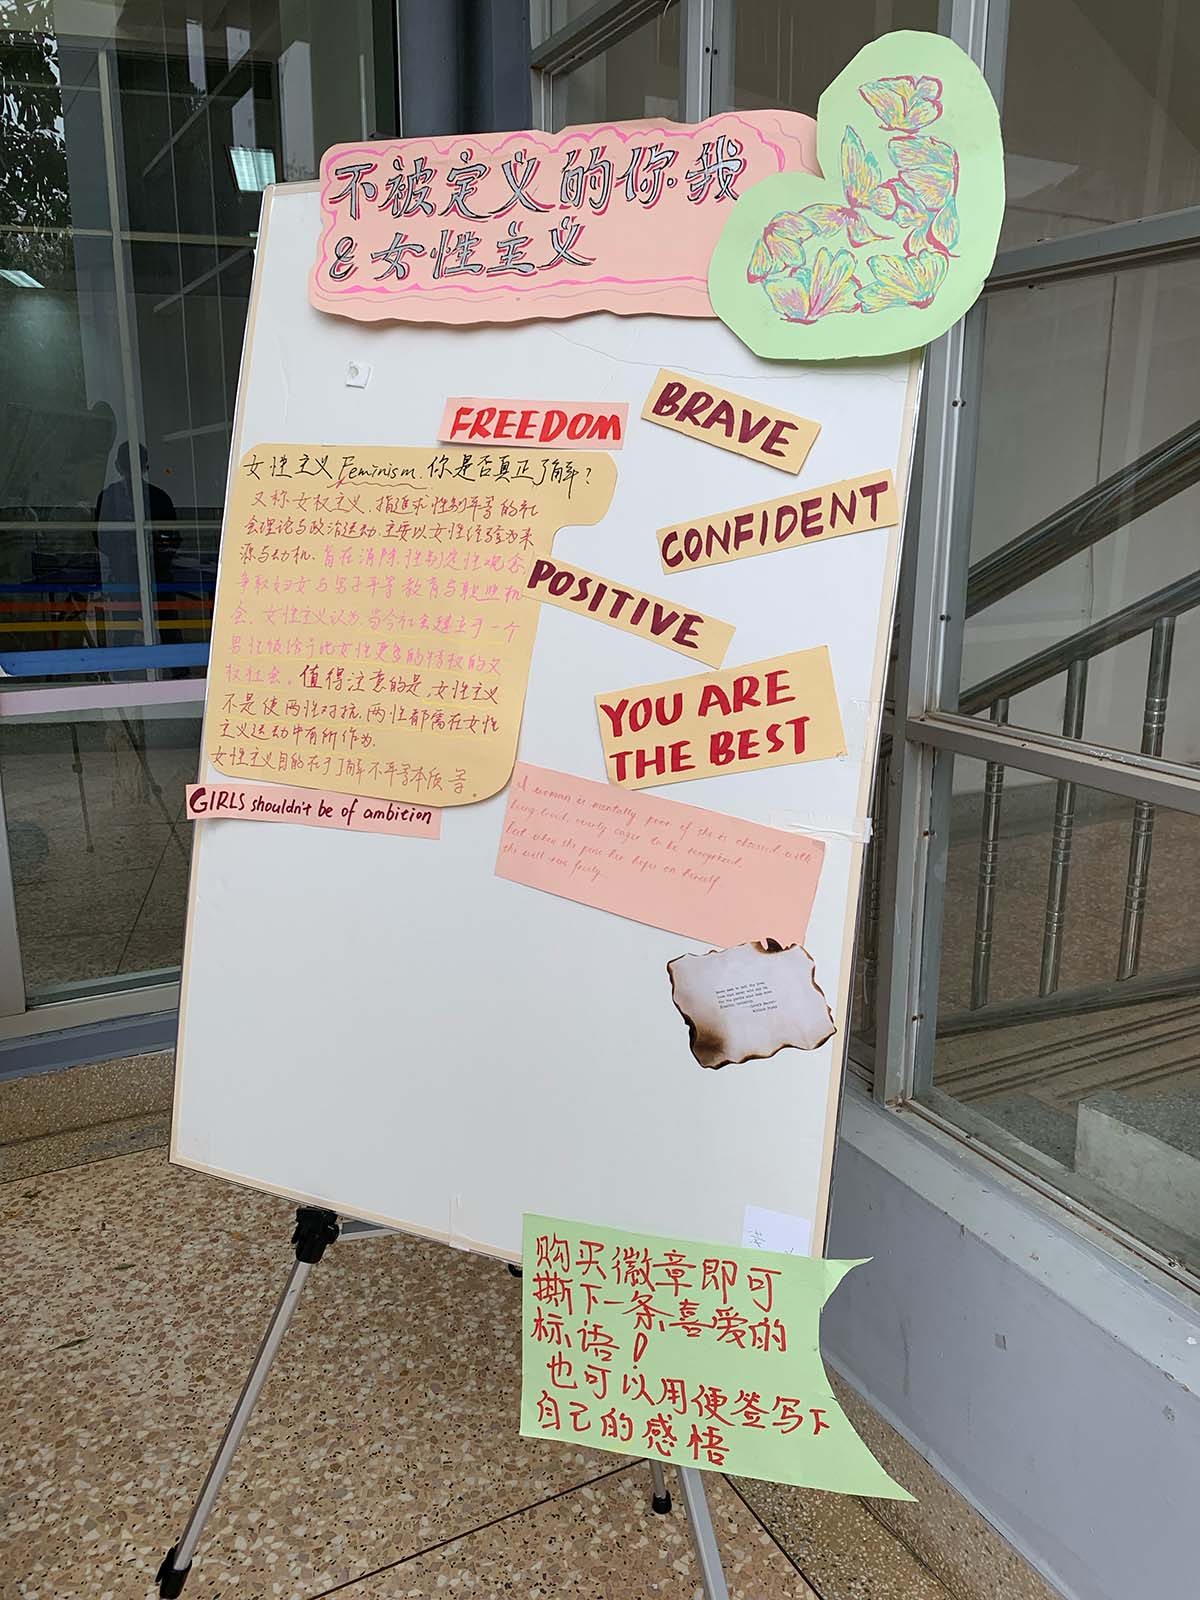 不被定义的你.我
& 女性主义
FREEDOM
BRAVE
CONFIDENT
POSITIVE
YOU ARE
THE BEST
女性主义 Feminism. 你是否真正了解?
又称女权主义, 指追求性别平等的社
会理论与政治运动, 主要以女性经验为来
源与动机. 旨在消除性别定性观念
争取妇女与男子平等教育与职业机
会. 女性主义认为, 当今社会建立于一个
男性被给予比女性更多的特权的父
权社会. 值得注意的是, 女性主义
不是使两性对抗, 两性都需在女性
主义运动中有所作为.
女性主义目的在于了解不平等本质等。
GIRLS shouldn't be of ambition
A woman is mentally poor if she is obsessed with
being loved, overly eager to be recognized.
But when she pins her hopes on herself
she will run freely.
购买徽章即可
撕下一条喜爱的
标语!
也可以用便签写下
自己的感悟